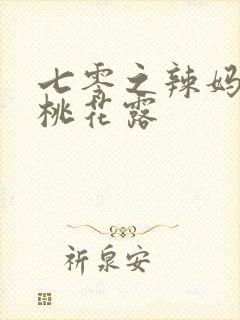 七零之辣妈
桃花露
祈泉安